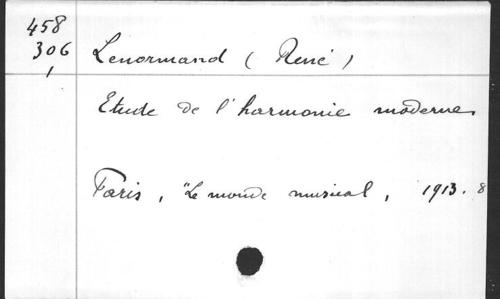 458
306
1
Lenormand (René)
Etude de l'harmonie moderne
Paris, "Le monde musical, 1913. 8